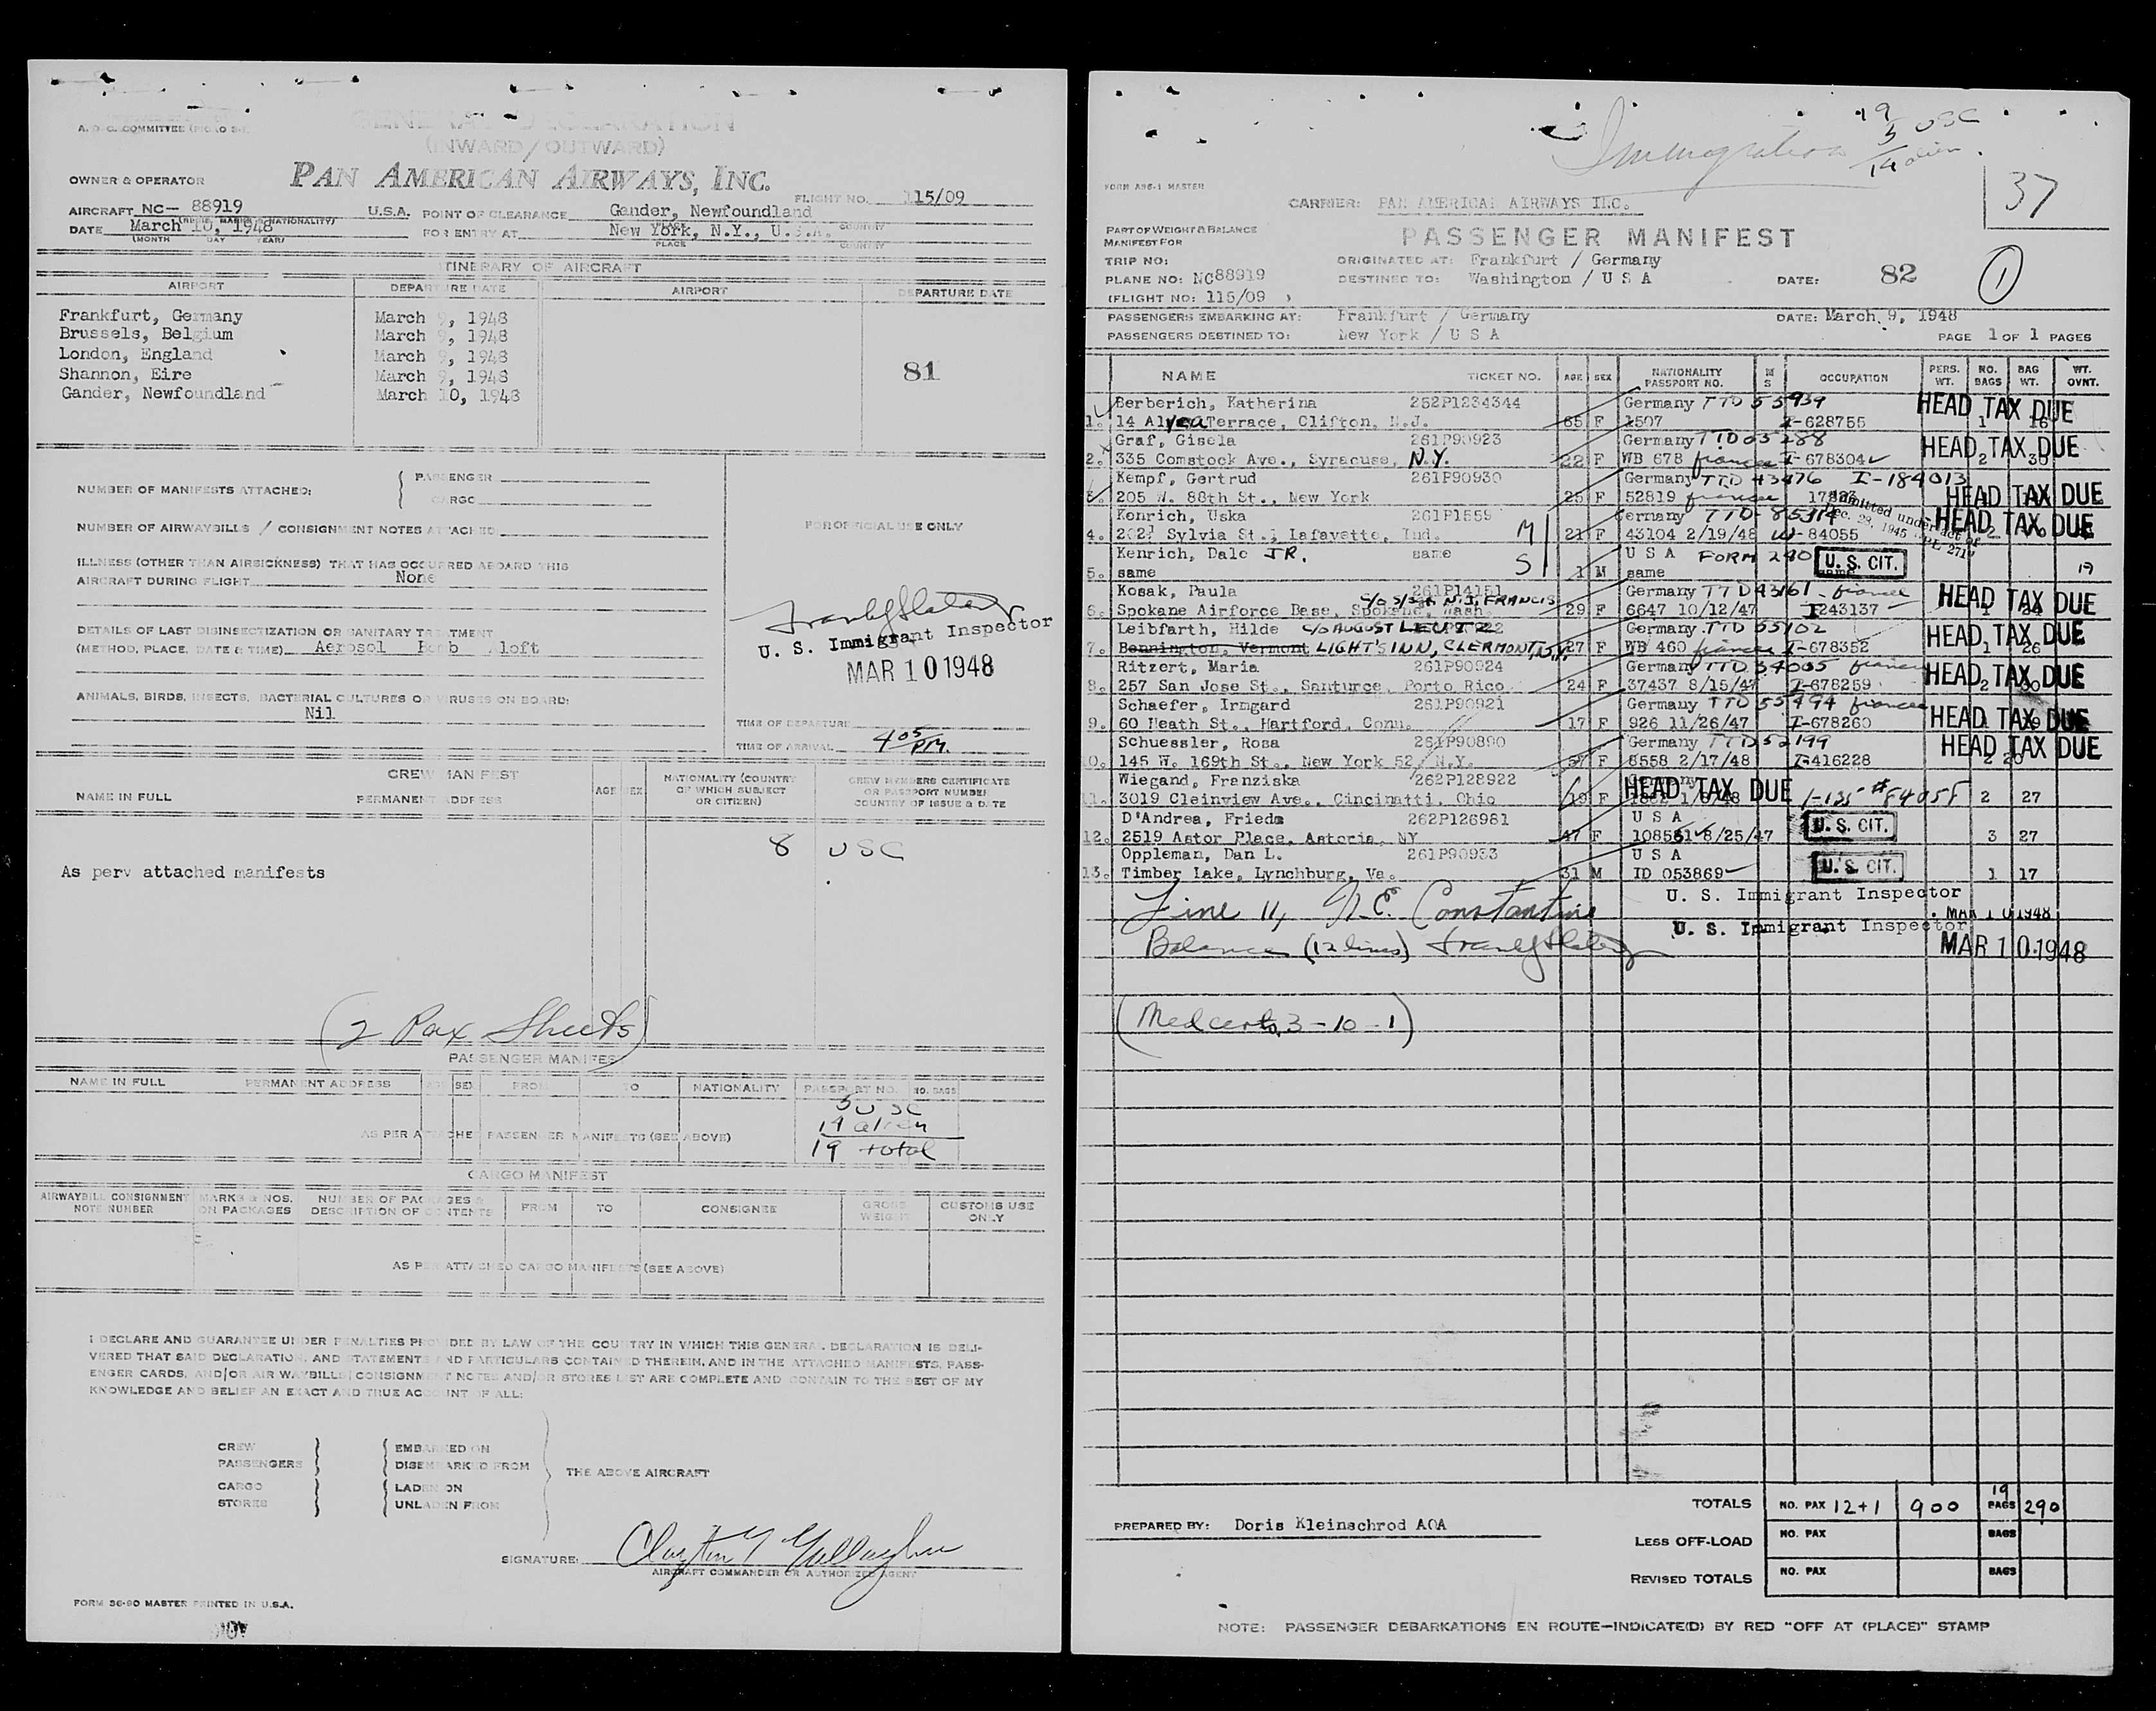 A. T. C. COMMITTEE (PICAO
GENERAL DECLARATION
(INWARD / OUTWARD)
OWNER & OPERATOR PAN AMERICAN AIRWAYS, INC.
FLIGHT NO. 115/09
AIRCRAFT NC- 88919 U.S.A. POINT OF CLEARANCE Gander, Newfoundland
(TYPE, MARKS & NATIONALITY) PLACE COUNTRY
DATE March 10, 1948 FOR ENTRY AT New York, N.Y., U.S.A.
(MONTH DAY YEAR) PLACE COUNTRY
ITINERARY OF AIRCRAFT
AIRPORT DEPARTURE DATE AIRPORT DEPARTURE DATE
Frankfurt, Germany March 9, 1948
Brussels, Belgium March 9, 1948
London, England March 9, 1948
Shannon, Eire March 9, 1948
81
Gander, Newfoundland March 10, 1948
NUMBER OF MANIFESTS ATTACHED: { PASSENGER
CARGO
NUMBER OF AIRWAYBILLS / CONSIGNMENT NOTES ATTACHED
FOR OFFICIAL USE ONLY
ILLNESS (OTHER THAN AIRSICKNESS) THAT HAS OCCURRED ABOARD THIS
AIRCRAFT DURING FLIGHT None
U. S. Immigrant Inspector
MAR 10 1948
DETAILS OF LAST DISINSECTIZATION OR SANITARY TREATMENT
(METHOD, PLACE, DATE & TIME) Aerosol Bomb Aloft
ANIMALS, BIRDS, INSECTS, BACTERIAL CULTURES OR VIRUSES ON BOARD:
Nil
TIME OF DEPARTURE
TIME OF ARRIVAL 4 05 PM.
CREW MANIFEST
NAME IN FULL PERMANENT ADDRESS AGE SEX NATIONALITY (COUNTRY OF WHICH SUBJECT OR CITIZEN) CREW MEMBERS CERTIFICATE OR PASSPORT NUMBER COUNTRY OF ISSUE & DATE
8 USC
As perv attached manifests
(2 Pax Sheets)
PASSENGER MANIFEST
NAME IN FULL PERMANENT ADDRESS AGE SEX FROM TO NATIONALITY PASSPORT NO. NO. BAGS
5 USC
14 alien
AS PER ATTACHED PASSENGER MANIFESTS (SEE ABOVE)
19 total
CARGO MANIFEST
AIRWAYBILL CONSIGNMENT NOTE NUMBER MARKS & NOS. ON PACKAGES NUMBER OF PACKAGES & DESCRIPTION OF CONTENTS FROM TO CONSIGNEE GROSS WEIGHT CUSTOMS USE ONLY
AS PER ATTACHED CARGO MANIFESTS (SEE ABOVE)
I DECLARE AND GUARANTEE UNDER PENALTIES PROVIDED BY LAW OF THE COUNTRY IN WHICH THIS GENERAL DECLARATION IS DELI-
VERED THAT SAID DECLARATION, AND STATEMENTS AND PARTICULARS CONTAINED THEREIN, AND IN THE ATTACHED MANIFESTS, PASS-
ENGER CARDS, AND/OR AIR WAYBILLS/CONSIGNMENT NOTES AND/OR STORES LIST ARE COMPLETE AND CONTAIN TO THE BEST OF MY
KNOWLEDGE AND BELIEF AN EXACT AND TRUE ACCOUNT OF ALL:
CREW EMBARKED ON
PASSENGERS DISEMBARKED FROM
THE ABOVE AIRCRAFT
CARGO LADEN ON
STORES UNLADEN FROM
SIGNATURE:
AIRCRAFT COMMANDER OR AUTHORIZED AGENT
FORM 36-90 MASTER PRINTED IN U.S.A.
Immigration 19
5 USC
14 alien
37
FORM A96-1 MASTER
CARRIER: PAN AMERICAN AIRWAYS INC.
PART OF WEIGHT & BALANCE
MANIFEST FOR PASSENGER MANIFEST
TRIP NO: ORIGINATED AT: Frankfurt / Germany
PLANE NO: NC88919 DESTINED TO: Washington / U S A DATE: 82 1
(FLIGHT NO: 115/09 )
PASSENGERS EMBARKING AT: Frankfurt / Germany DATE: March 9, 1948
PASSENGERS DESTINED TO: New York / U S A PAGE 1 OF 1 PAGES
NAME TICKET NO. AGE SEX NATIONALITY PASSPORT NO. M S OCCUPATION PERS. WT. NO. BAGS BAG WT. WT. OVNT.
Berberich, Katherina 252P1234344 Germany TTD 55939 HEAD TAX DUE
1. 14 Alyea Terrace, Clifton, N.J. 65 F 1507 I-628755 1 16
Graf, Gisela 261P90923 Germany HEAD TAX DUE
2. 335 Comstock Ave., Syracuse, N.Y. 22 F WB 678 fiancee I-678304 2 30
Kempf, Gertrud 261P90930 Germany TTD 43476 I-184013 HEAD TAX DUE
3. 205 W. 88th St., New York 25 F 52819 fiancee
Kenrich, Uska 261P1559 Germany TTD-85314 Admitted under Act of Dec. 28, 1945 P.L. 271 HEAD TAX DUE
4. 2021 Sylvia St., Lafayette, Ind. M 21 F 43104 2/19/48 W-84055
Kenrich, Dale JR. same U S A FORM 240 U. S. CIT.
5. same S 1 M same same 17
Kosak, Paula 261P14151 Germany TTD 43161 fiancee HEAD TAX DUE
6. Spokane Airforce Base, Spokane, Wash. c/o S/Sgt N.J. FRANCIS 29 F 6647 10/12/47 I243137
Leibfarth, Hilde c/o AUGUST LEUTZ Germany TTD 55102 HEAD TAX DUE
7. Bennington, Vermont LIGHT'S INN, CLERMONT, N.Y. 27 F WB 460 fiancee I-678352 1 26
Ritzert, Maria 261P90924 Germany TTD 54035 fiancee HEAD TAX DUE
8. 257 San Jose St., Santurce, Porto Rico 24 F 37437 8/15/47 I-678259 2
Schaefer, Irmgard 261P90921 Germany TTD 55494 fiancee HEAD TAX DUE
9. 60 Heath St., Hartford, Conn. 17 F 926 11/26/47 I-678260
Schuessler, Rosa 261P90890 Germany TTD 52199 HEAD TAX DUE
10. 145 W. 169th St., New York 52, N.Y. F 8558 2/17/48 I-416228 2 20
Wiegand, Franziska 262P128922 Germany HEAD TAX DUE
11. 3019 Cleinview Ave., Cincinatti, Ohio 19 F 2 27
D'Andrea, Frieda 262P126981 U S A U. S. CIT.
12. 2519 Astor Place, Astoria, NY 47 F 108561 8/25/47 3 27
Oppleman, Dan L. 261P90933 U S A U. S. CIT.
13. Timber Lake, Lynchburg, Va. 31 M ID 053869 1 17
U. S. Immigrant Inspector
Line 11, N.E. Constantine MAR 10 1948
U. S. Immigrant Inspector
Balance (12 lines) MAR 10 1948
(Med certs, 3-10-1)
TOTALS NO. PAX 12+1 900 19 BAGS 290
PREPARED BY: Doris Kleinschrod AOA
LESS OFF-LOAD NO. PAX BAGS
REVISED TOTALS NO. PAX BAGS
NOTE: PASSENGER DEBARKATIONS EN ROUTE—INDICATE(D) BY RED "OFF AT (PLACE)" STAMP